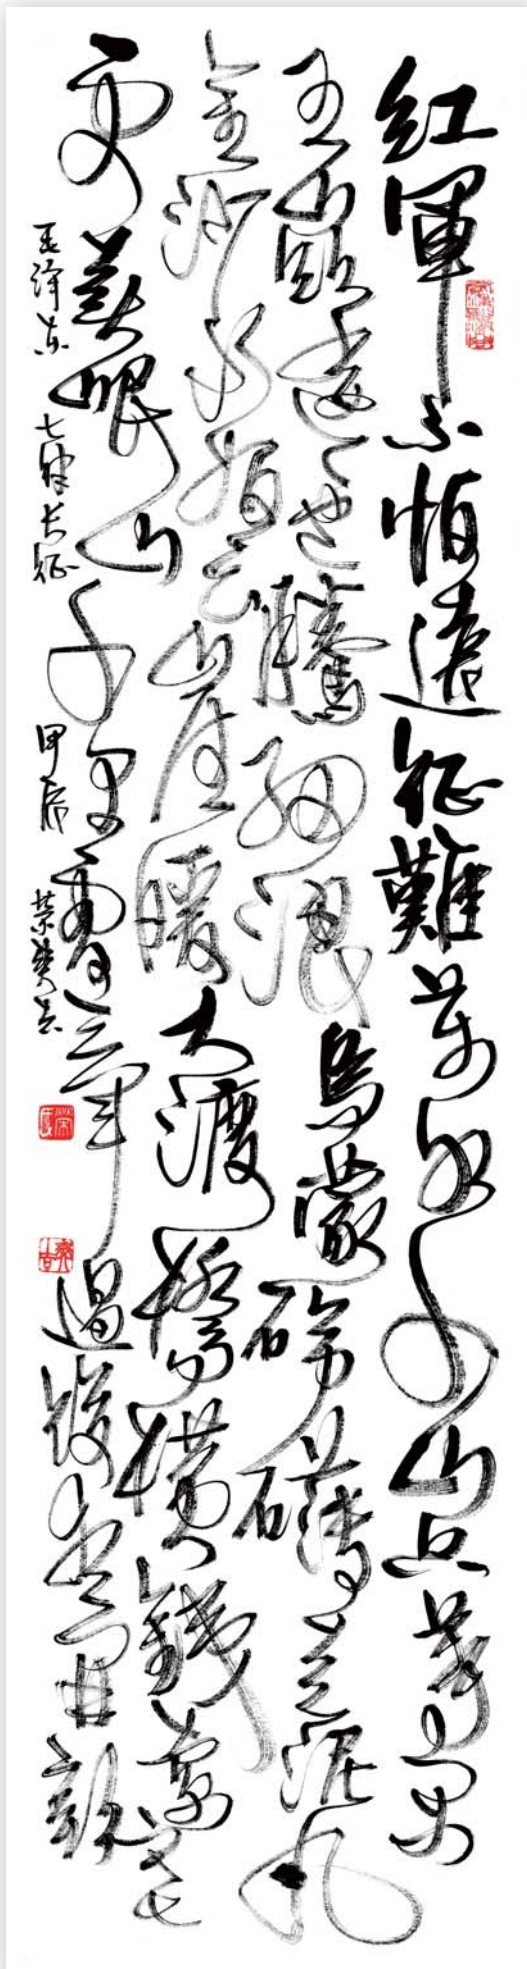 紅軍不怕遠征難萬水千山只等閒
五嶺逶迤騰細浪烏蒙磅礴走泥丸
金沙水拍云崖暖大渡橋橫鐵索寒
更喜岷山千里雪三軍過後盡開顏
毛澤東 七律長征 甲辰 榮